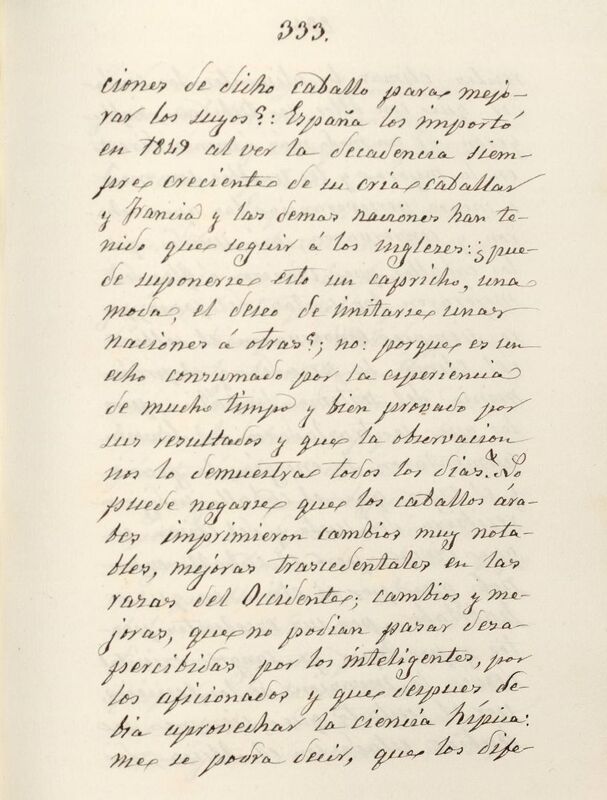 333.
ciones de dicho caballo para mejo-
rar los suyos?: España los importó
en 1849 al ver la decadencia siem-
pre creciente de su cria caballar
y Francia y las demas naciones han te-
nido que seguir á los inglezes: ¿pue-
de suponerse esto un capricho, una
moda, el deseo de imitarse unas
naciones á otras?; no: porque es un
echo consumado por la esperiencia
de mucho timpo y bien provado por
sus resultados y que la observacion
nos lo demuestra todos los dias. No
puede negarse que los caballos ára-
bes imprimieron cambios muy nota-
bles, mejoras trascedentales en las
razas del Occidente; cambios y me-
joras, que no podian pasar desa-
percibidas por los inteligentes, por
los aficionados y que despues de-
bia aprovechar la ciencia hípica:
me se podra decir, que los dife-